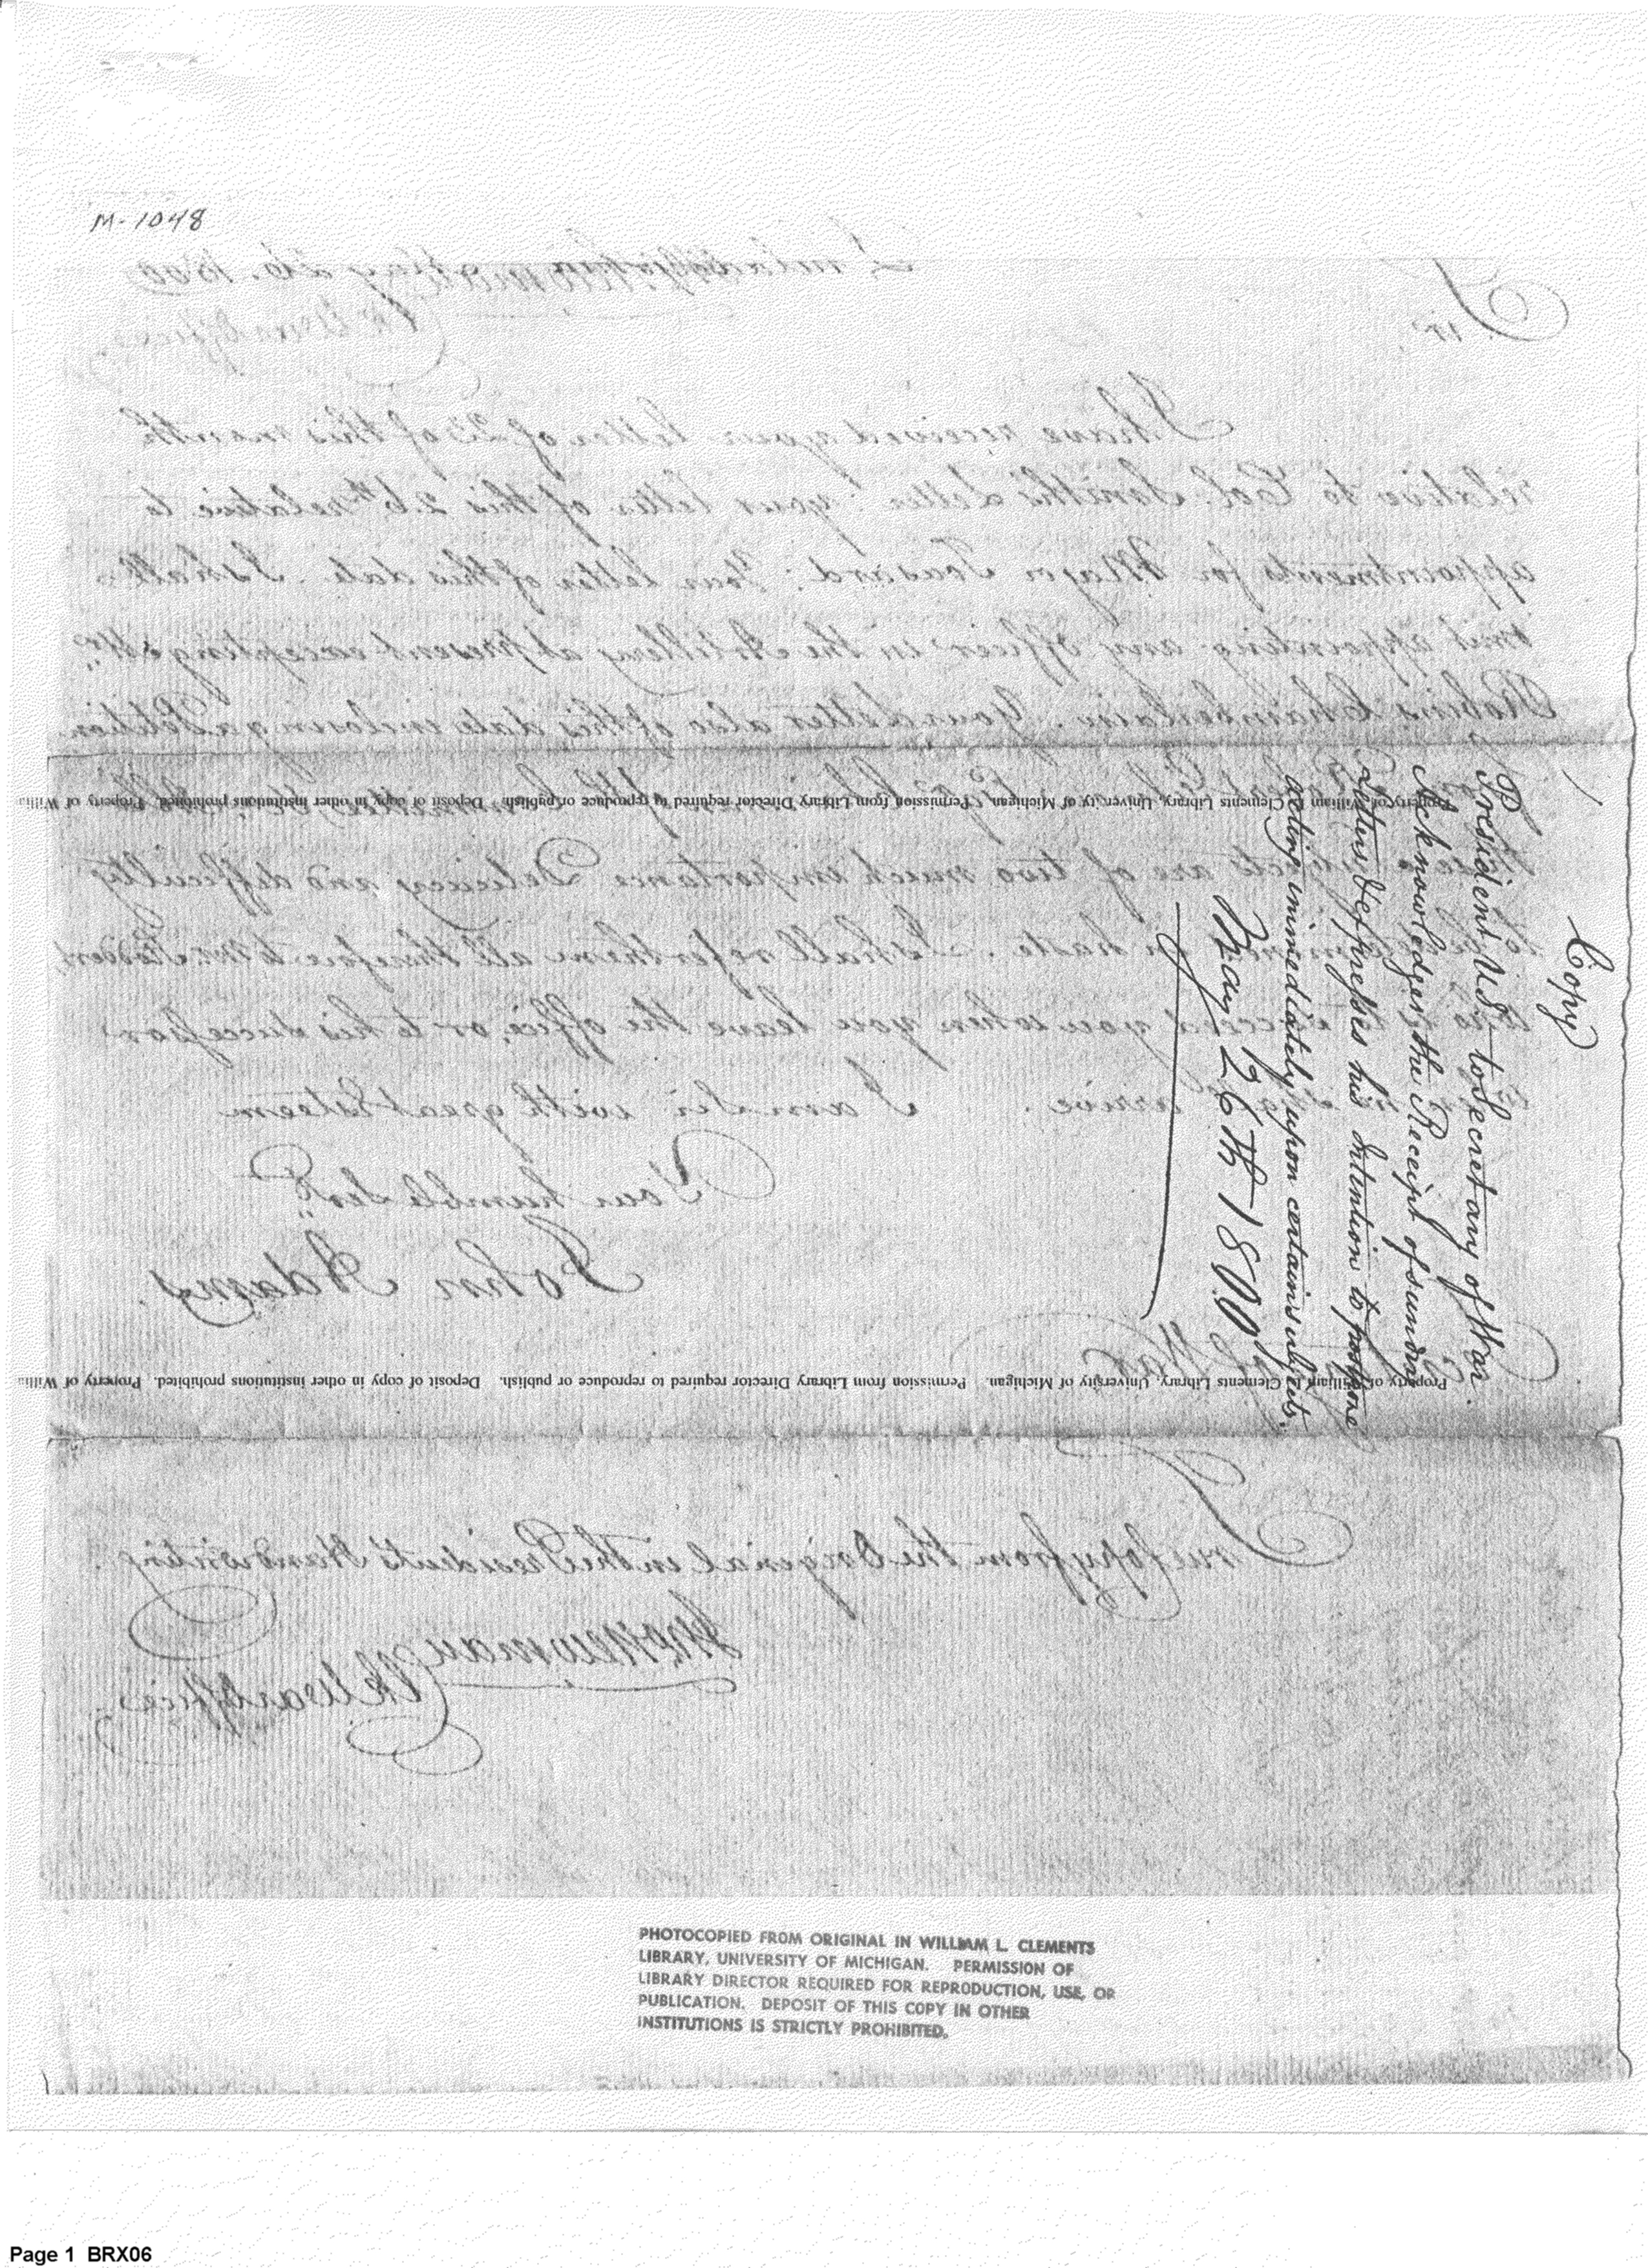 M-1048
Philadelphia May 26. 1800
Sir,
I have received your letter of 23 of this month
relative to Col. Smith's Letter: your letter of this 26th relative to
appointments for Major Tousard: Your letter of this date. I shall
omit appointing any officer in the Artillery at present excepting Mr.
Robins Chamberlain. Your Letter also of this date inclosing a Petition
Property of William L. Clements Library, University of Michigan. Permission from Library Director required to reproduce or publish. Deposit of copy in other institutions prohibited. Property of Willia
These subjects are of two much importance Delicacy and difficulty
to be determined in haste. I shall refer them all therefore to Mr. Stoddert,
who is to succeed you when you leave the office, or to his successor
when he shall arrive. I am Sir with great Esteem
Your humble Servt.
John Adams.
of War
Property of William L. Clements Library, University of Michigan. Permission from Library Director required to reproduce or publish. Deposit of copy in other institutions prohibited. Property of Willia
True Copy from the Original in the Presidents Handwriting.
Jno. Newman
Clk War Office
Copy
President U.S. to Secretary of War.
Acknowledges the Receipt of sundry
Letters & expresses his Intention to postpone
acting immediately upon certain subjects.
May 26th 1800
PHOTOCOPIED FROM ORIGINAL IN WILLIAM L. CLEMENTS
LIBRARY, UNIVERSITY OF MICHIGAN. PERMISSION OF
LIBRARY DIRECTOR REQUIRED FOR REPRODUCTION, USE, OR
PUBLICATION. DEPOSIT OF THIS COPY IN OTHER
INSTITUTIONS IS STRICTLY PROHIBITED.
Page 1 BRX06